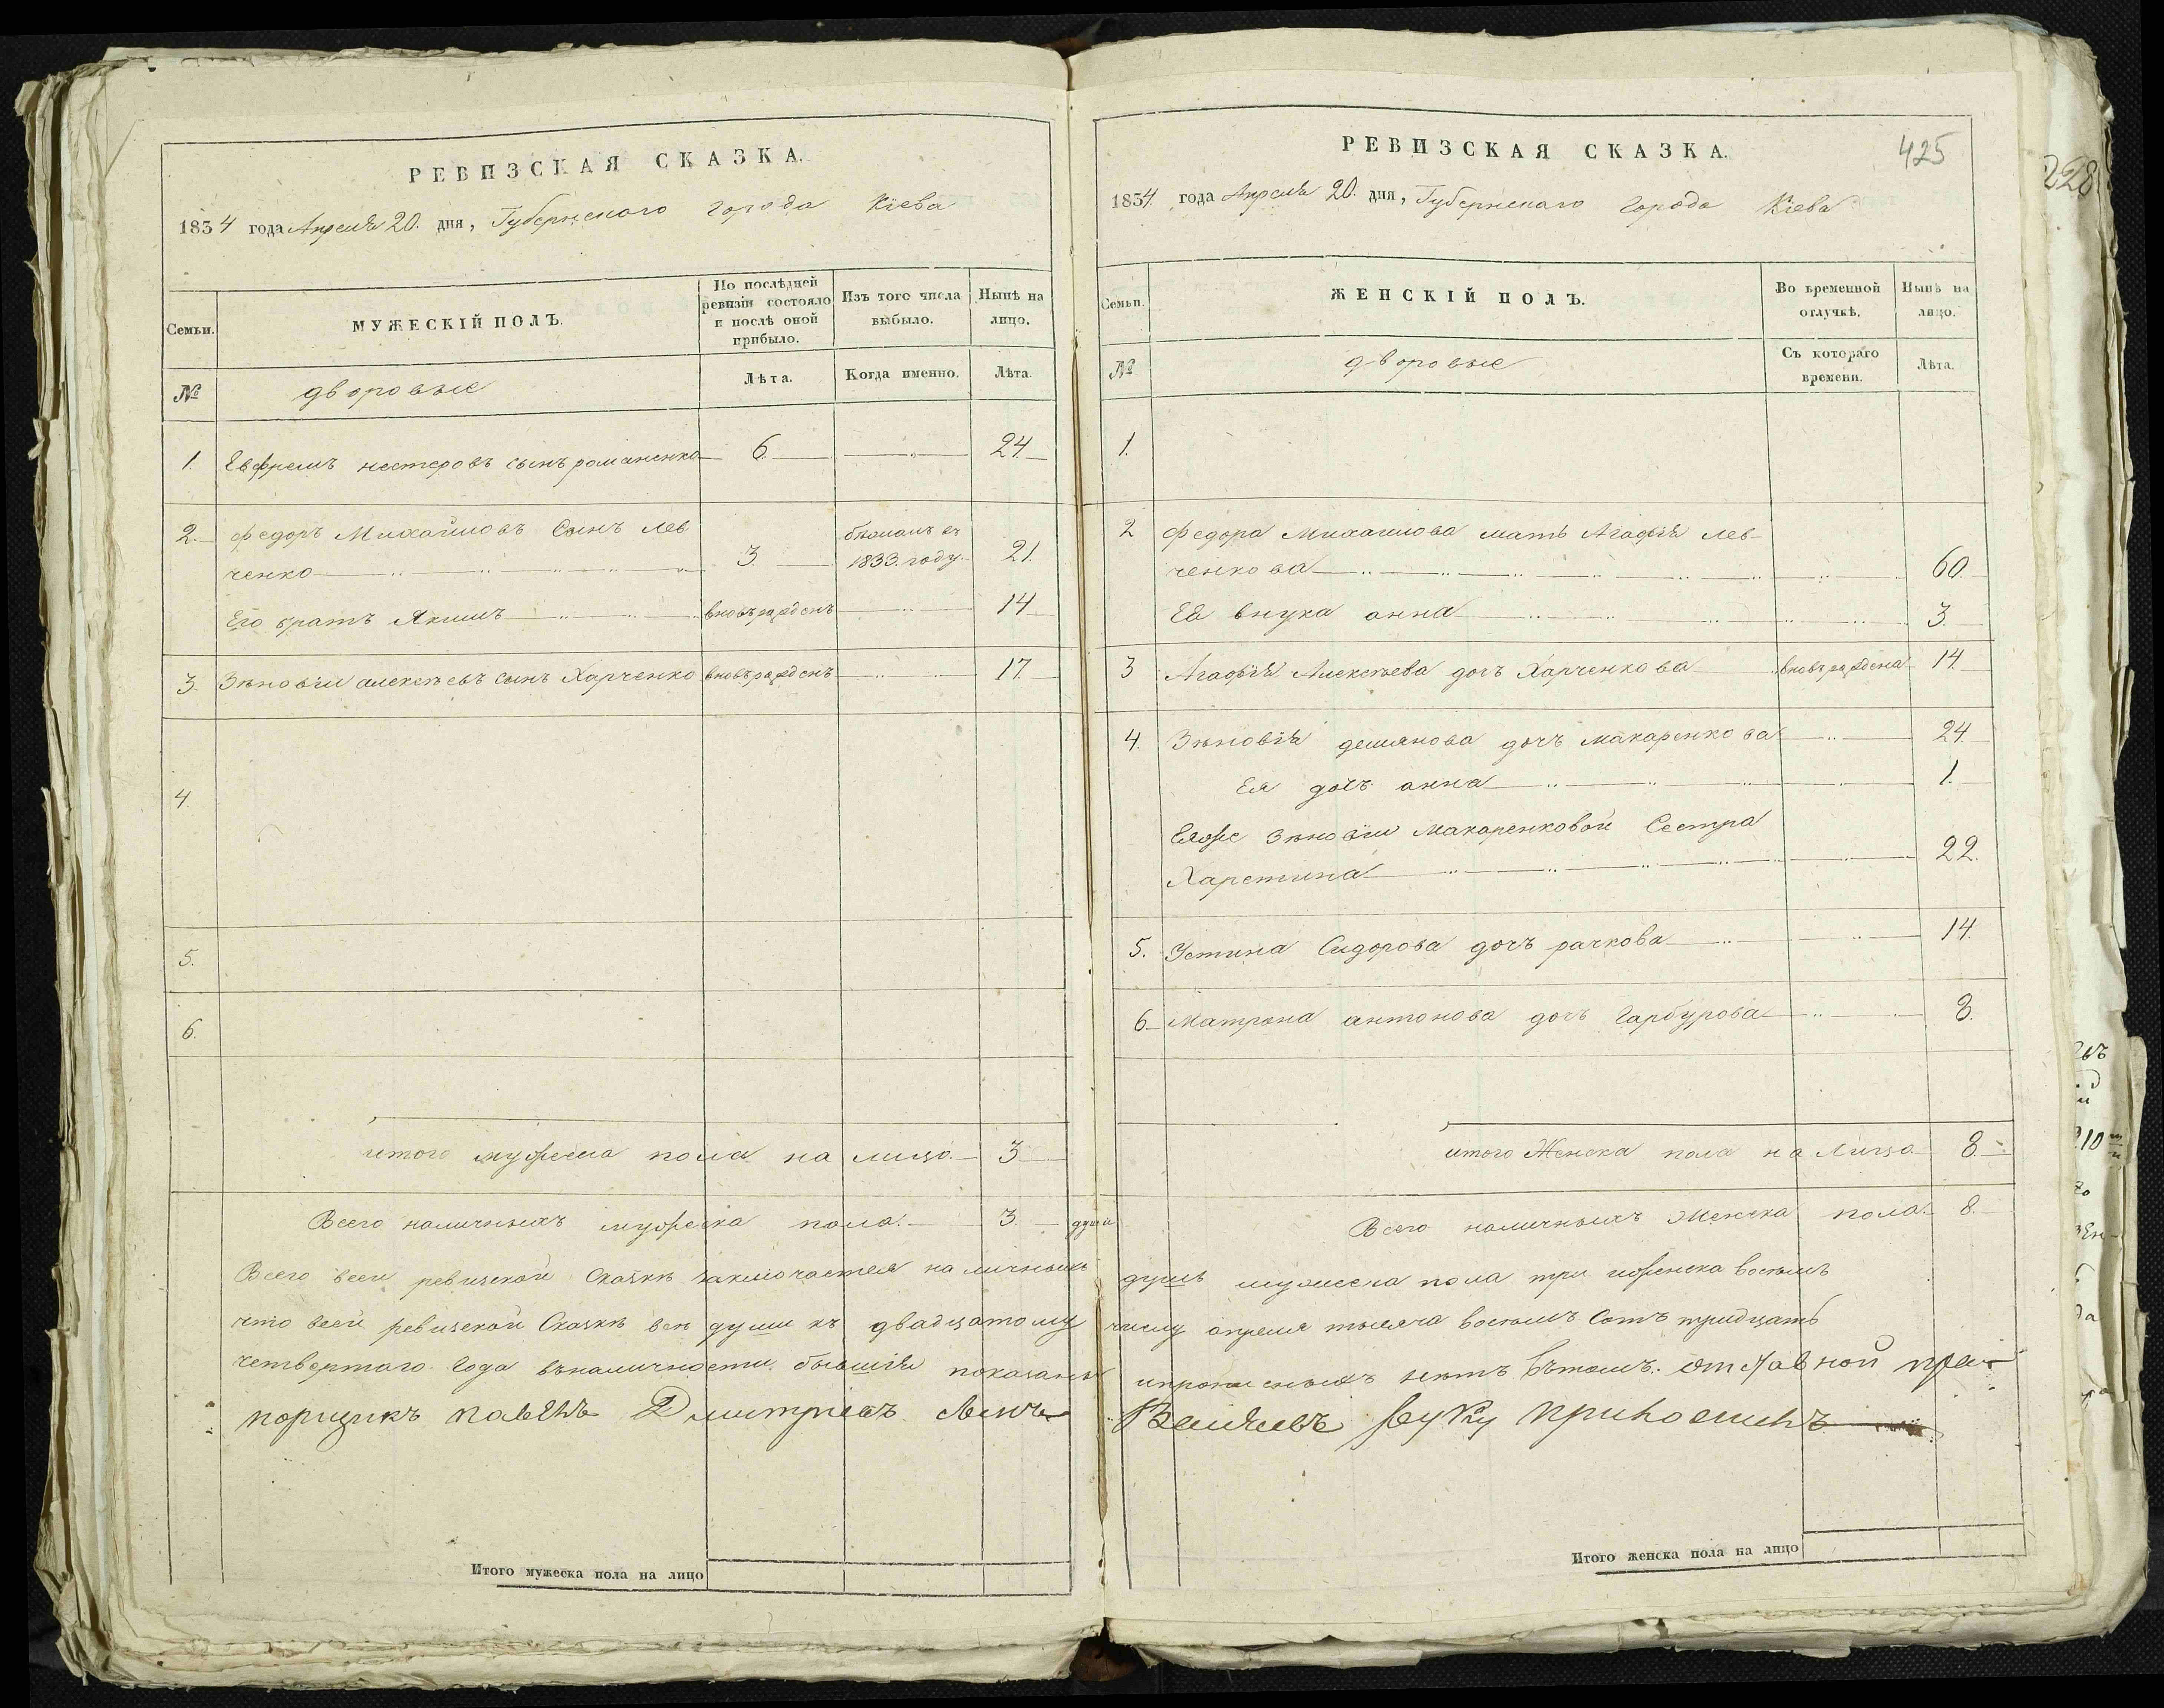 РЕВИЗСКАЯ СКАЗКА.
1834 года Апреля 20. дня, Губернскаго города Кіева
Семьи.
МУЖЕСКІЙ ПОЛЪ.
По послѣдней ревизіи состояло и послѣ оной прибыло.
Изъ того числа выбыло.
Нынѣ на лицо.
№
дворовые
Лѣта.
Когда именно.
Лѣта.
1. Евфремъ нестеровъ сынъ романенко 6. 24.
2. федоръ Михайловъ Сынъ Лев
ченко 3. бѣжалъ въ 1833. году. 21.
Его братъ Якимъ вновь рожденъ 14
3. Зѣновіи алексѣевъ сынъ Харченко вновь рожденъ 17.
4.
5.
6.
итого мужеска пола на лицо. 3
Всего наличныхъ мужеска пола. 3. душа
РЕВИЗСКАЯ СКАЗКА. 425
1834. года Апреля 20. дня, Губернскаго города Кіева
Семьи.
ЖЕНСКІЙ ПОЛЪ.
Во временной отлучкѣ.
Нынѣ на лицо.
№
дворовые
Съ котораго времени.
Лѣта.
1.
2 федора Михаилова мать Агафія лев-
ченкова 60.
Ея внука анна 3.
3 Агафія Алексѣева дочъ Харченкова вновь рождена 14.
4. Зѣновія демянова дочъ макаренкова 24.
Ея дочъ анна 1.
Еяже Зѣновіи макаренковой Сестра
Харетина 22.
5. Устина Сидорова дочъ рачкова 14.
6 Матрона антонова дочъ Гарбурова 8.
итого Женска пола на Лицо. 8.
Всего наличныхъ Женска пола. 8.
Всего всеи ревизскои Сказкѣ заключается наличныхъ душъ мужеска пола три иженска восемъ
что всеи ревизской Сказкѣ всѣ души къ двадцатому числу апреля тысяча восемъ Сотъ тридцать
четвертаго Года въналичности бывшія показаны ипрописныхъ нетъ вътомъ. отставной пра-
порщикъ павелъ Дмитріевъ сынъ руку приложилъ
Итого мужеска пола на лицо
Итого женска пола на лицо
228